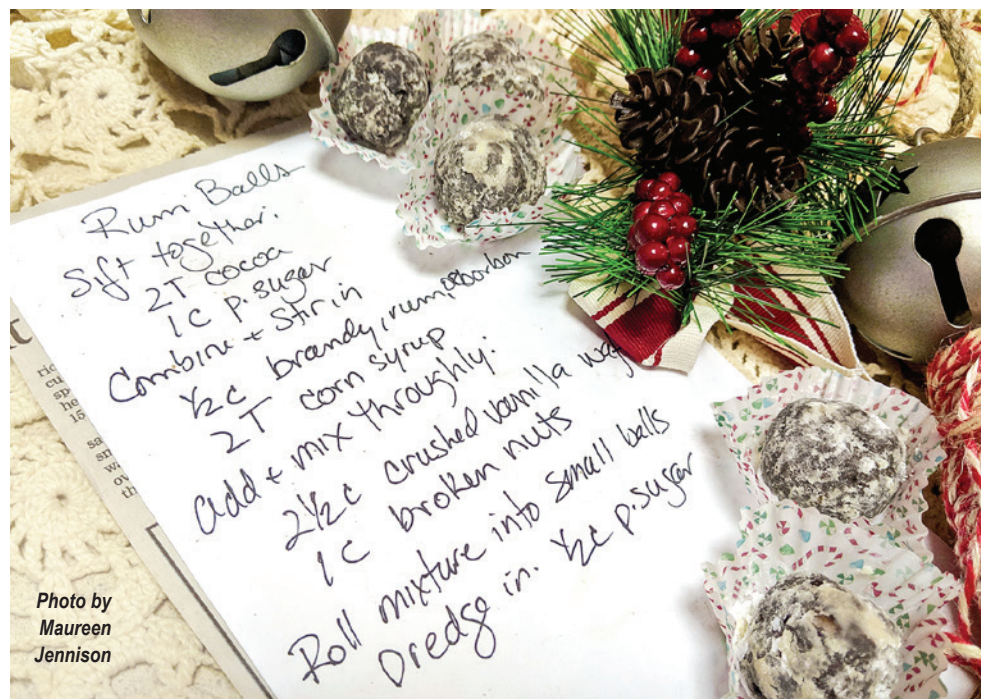 Rum Balls
Sift together.
2T cocoa
1c p. sugar
Combine + Stir in
½c brandy, rum, or borbon
2T corn syrup
add + mix throughly:
2½c crushed vanilla
1c broken nuts
Roll mixture into small balls
Dredge in ½c p. sugar
Photo by
Maureen
Jennison